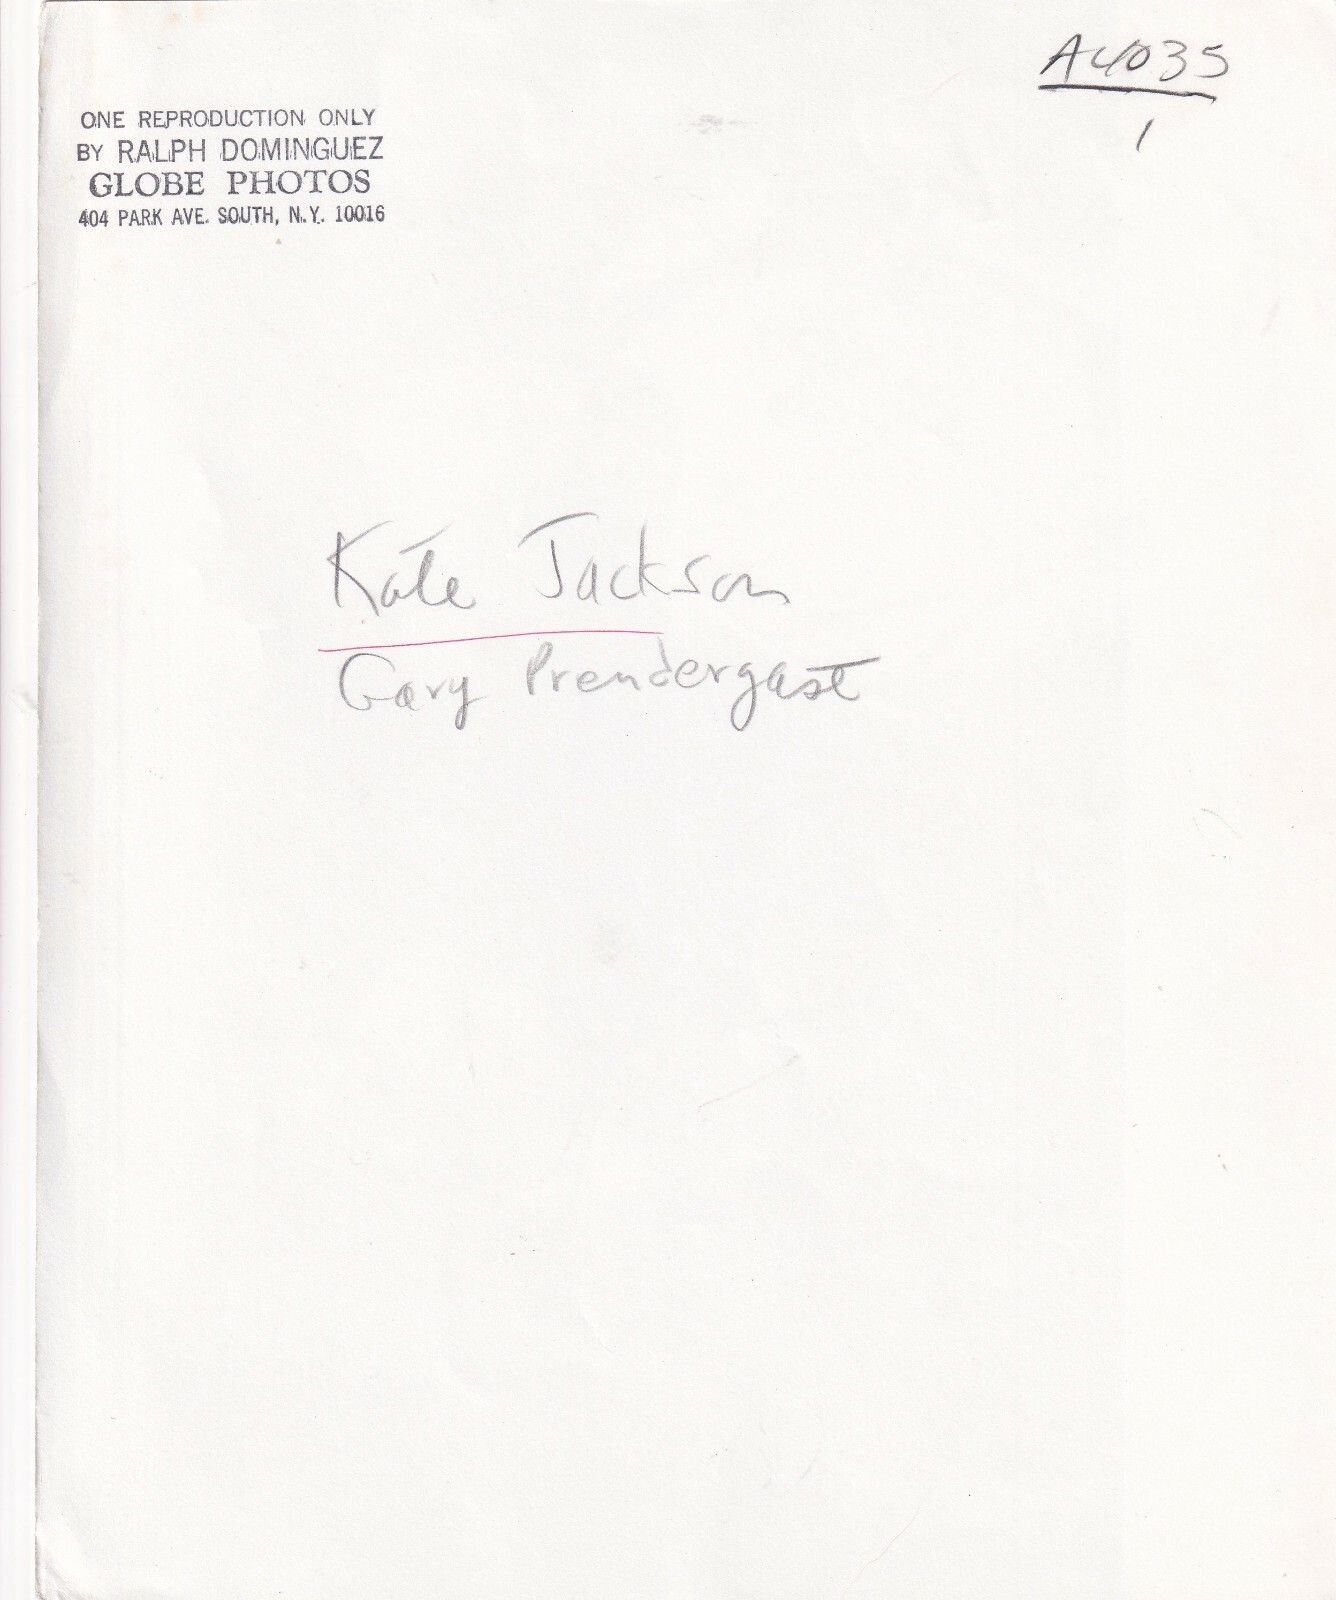 A4035
1
ONE REPRODUCTION ONLY
BY RALPH DOMINGUEZ
GLOBE PHOTOS
404 PARK AVE. SOUTH, N.Y. 10016
Kate Jackson
Gary Prendergast